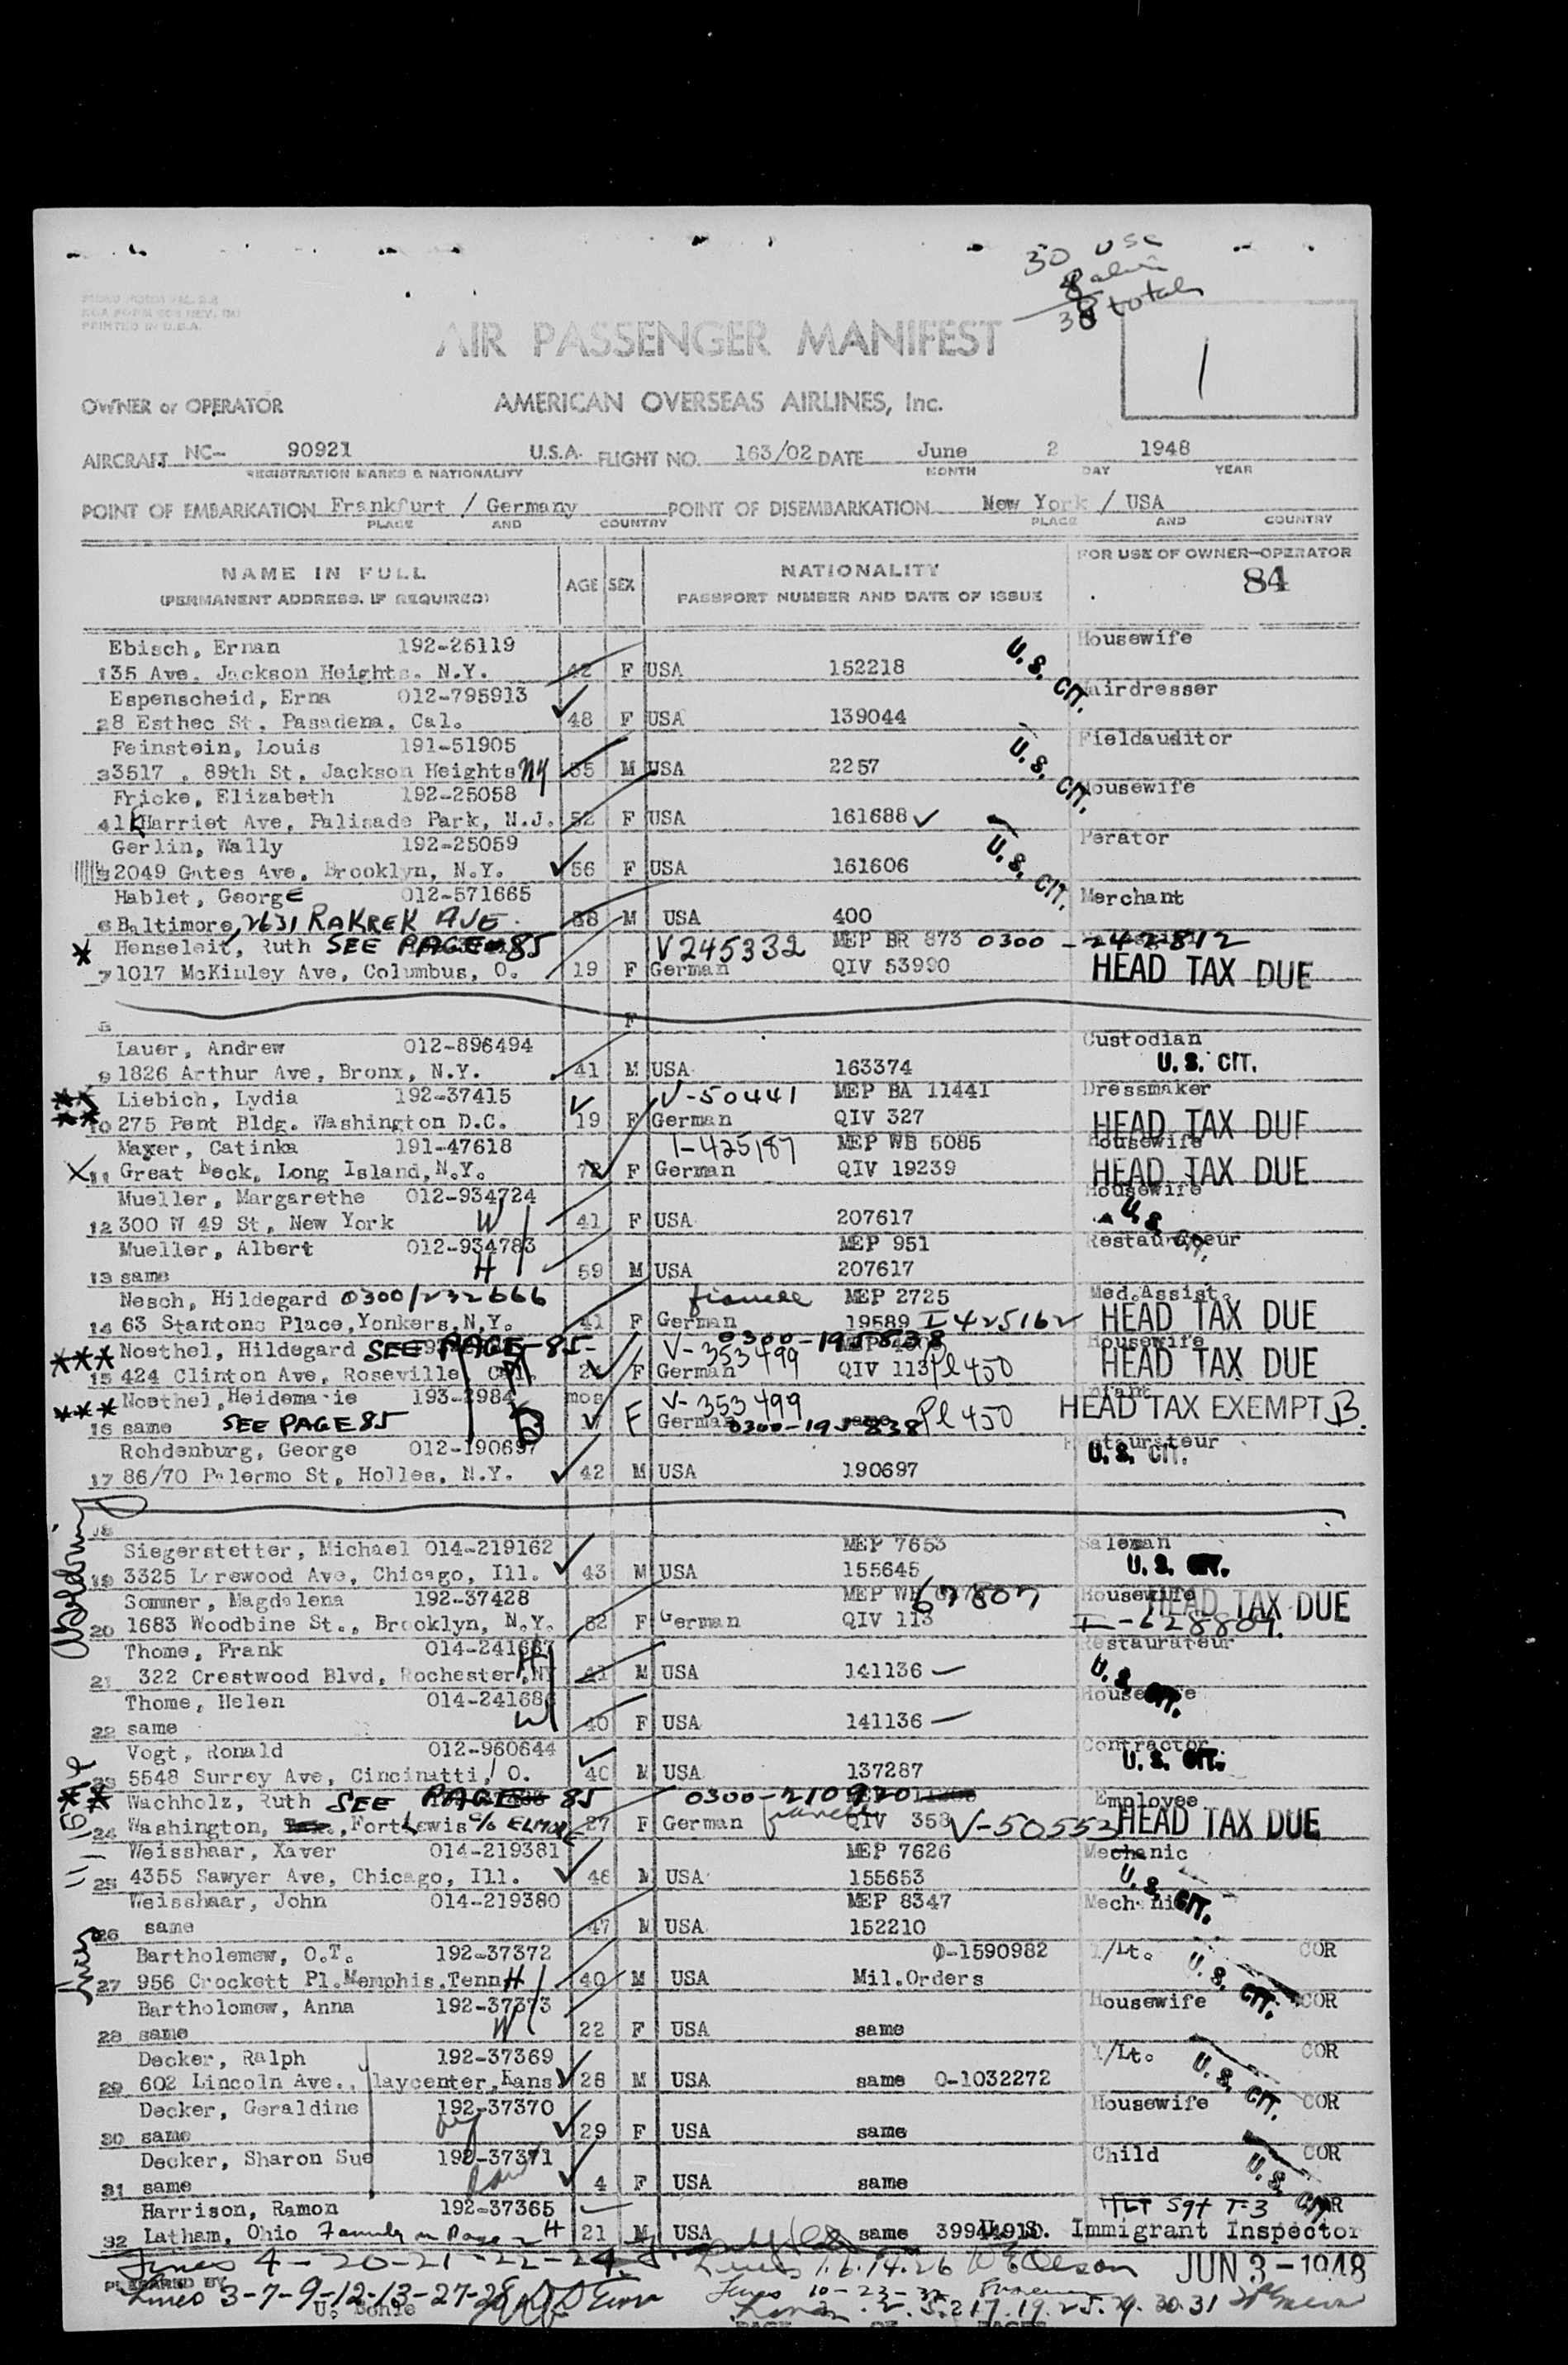 30 USC
38 total
AIR PASSENGER MANIFEST
1
OWNER or OPERATOR AMERICAN OVERSEAS AIRLINES, Inc.
AIRCRAFT NC- 90921 U.S.A. FLIGHT NO. 163/02 DATE June 2 1948
REGISTRATION MARKS & NATIONALITY MONTH DAY YEAR
POINT OF EMBARKATION Frankfurt / Germany POINT OF DISEMBARKATION New York / USA
PLACE AND COUNTRY PLACE AND COUNTRY
NAME IN FULL AGE SEX NATIONALITY FOR USE OF OWNER-OPERATOR
(PERMANENT ADDRESS, IF REQUIRED) PASSPORT NUMBER AND DATE OF ISSUE 84
Ebisch, Ernan 192-26119 Housewife
1 35 Ave. Jackson Heights. N.Y. 42 F USA 152218 U.S. CIT.
Espenscheid, Erna 012-795913 Hairdresser
2 8 Esthec St, Pasadena, Cal. 48 F USA 139044
Feinstein, Louis 191-51905 Fieldauditor
3 3517 , 89th St, Jackson Heights NY 55 M USA 2257 U.S. CIT.
Fricke, Elizabeth 192-25058 Housewife
4 1 Harriet Ave, Palisade Park, N.J. 52 F USA 161688
Gerlin, Wally 192-25059 Perator
5 2049 Gates Ave, Brooklyn, N.Y. 56 F USA 161606 U.S. CIT.
Hablet, George 012-571665 Merchant
6 Baltimore, 2631 RAKREK AVE. 38 M USA 400
* Henseleit, Ruth SEE PAGE 85 V245332 MEP BR 873 0300-242812
7 1017 McKinley Ave, Columbus, O. 19 F German QIV 53990 HEAD TAX DUE
8 F
Lauer, Andrew 012-896494 Custodian
9 1826 Arthur Ave, Bronx, N.Y. 41 M USA 163374 U.S. CIT.
** Liebich, Lydia 192-37415 V-50441 MEP BA 11441 Dressmaker
** 10 275 Pent Bldg. Washington D.C. 19 F German QIV 327 HEAD TAX DUE
Mayer, Catinka 191-47618 I-425187 MEP WB 5085 Housewife
X 11 Great Neck, Long Island, N.Y. 72 F German QIV 19239 HEAD TAX DUE
Mueller, Margarethe 012-934724 Housewife
12 300 W 49 St, New York W 41 F USA 207617 U.S.
Mueller, Albert 012-934783 MEP 951 Restaurateur
13 same H 59 M USA 207617
Nesch, Hildegard 0300/232666 fiancee MEP 2725 Med.Assist.
14 63 Stantons Place, Yonkers, N.Y. 41 F German 19589 I 425162 HEAD TAX DUE
*** Noethel, Hildegard SEE PAGE 85 V-353499 0300-195838 Housewife
15 424 Clinton Ave, Roseville, Cal. F German QIV 113 Pl 450 HEAD TAX DUE
*** Noethel, Heidemarie 193-2984 mos V-353499 Infant
16 same SEE PAGE 85 F German 0300-195838 same Pl 450 HEAD TAX EXEMPT B.
Rohdenburg, George 012-190697 Restaurateur
17 86/70 Palermo St, Holles, N.Y. 42 M USA 190697 U.S. CIT.
18
Siegerstetter, Michael 014-219162 MEP 7653 Salesman
19 3325 Lorewood Ave, Chicago, Ill. 43 M USA 155645 U.S. CIT.
Sommer, Magdalena 192-37428 MEP WB 67807 Housewife HEAD TAX DUE
20 1683 Woodbine St., Brooklyn, N.Y. 62 F German QIV 113 I-628807.
Thome, Frank 014-241687 Restaurateur
21 322 Crestwood Blvd, Rochester, NY H 41 M USA 141136 U.S. CIT.
Thome, Helen 014-241686 Housewife
22 same W 40 F USA 141136
Vogt, Ronald 012-960644 Contractor
23 5548 Surrey Ave, Cincinatti, O. 40 M USA 137287 U.S. CIT.
* Wachholz, Ruth SEE PAGE 85 0300-210920 Employee
24 Washington, Fort Lewis c/o ELMORE 27 F German fiancee QIV 358 V-50553 HEAD TAX DUE
Weisshaar, Xaver 014-219381 MEP 7626 Mechanic
25 4355 Sawyer Ave, Chicago, Ill. 46 M USA 155653 U.S. CIT.
Weisshaar, John 014-219380 MEP 8347 Mechanic
26 same 47 M USA 152210
Bartholemew, O.T. 192-37372 O-1590982 1/Lt. COR
27 956 Crockett Pl. Memphis. Tenn H 40 M USA Mil.Orders U.S. CIT.
Bartholomew, Anna 192-37373 Housewife COR
28 same W 22 F USA same
Decker, Ralph 192-37369 1/Lt. COR
29 602 Lincoln Ave., Claycenter, Kans 28 M USA same O-1032272 U.S. CIT.
Decker, Geraldine 192-37370 Housewife COR
30 same 29 F USA same
Decker, Sharon Sue 192-37371 Child COR
31 same 4 F USA same U.S. CIT.
Harrison, Ramon 192-37365 Sgt T-3 COR
32 Latham, Ohio Family on Page 2 H 21 M USA same U.S. Immigrant Inspector
Lines 4-20-21-22-24 Lines 1.6.14.26 JUN 3 - 1948
PREPARED BY Lines 3-7-9-12-13-27-28 Lines 10-23-32
U. Bohle
PAGE OF PAGES